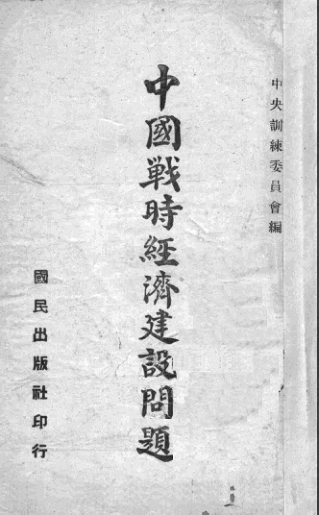 中央訓練委員會編
中國戰時經濟建設問題
國民出版社印行